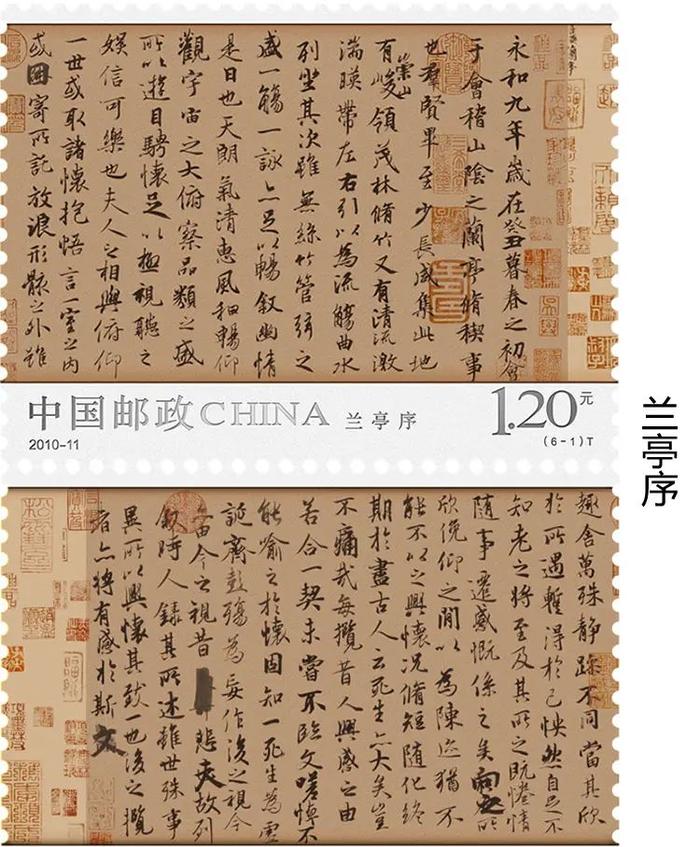 永和九年歲在癸丑暮春之初會
于會稽山陰之蘭亭脩稧事
也羣賢畢至少長咸集此地
有崇山峻領茂林脩竹又有清流激
湍暎帶左右引以為流觴曲水
列坐其次雖無絲竹管弦之
盛一觴一詠亦足以暢敘幽情
是日也天朗氣清惠風和暢仰
觀宇宙之大俯察品類之盛
所以遊目騁懷足以極視聽之
娛信可樂也夫人之相與俯仰
一世或取諸懷抱悟言一室之內
或因寄所託放浪形骸之外雖
中国邮政CHINA 兰亭序 1.20元
2010-11 (6-1)T
趣舍萬殊静躁不同當其欣
於所遇暫得於己怏然自足不
知老之將至及其所之既惓情
隨事遷感慨係之矣向之所
欣俛仰之間以為陳迹猶不
能不以之興懷況脩短隨化終
期於盡古人云死生亦大矣豈
不痛哉每攬昔人興感之由
若合一契未嘗不臨文嗟悼不
能喻之於懷固知一死生為虛
誕齊彭殤為妄作後之視今
亦由今之視昔悲夫故列
敘時人錄其所述雖世殊事
異所以興懷其致一也後之攬
者亦將有感於斯文
兰亭序